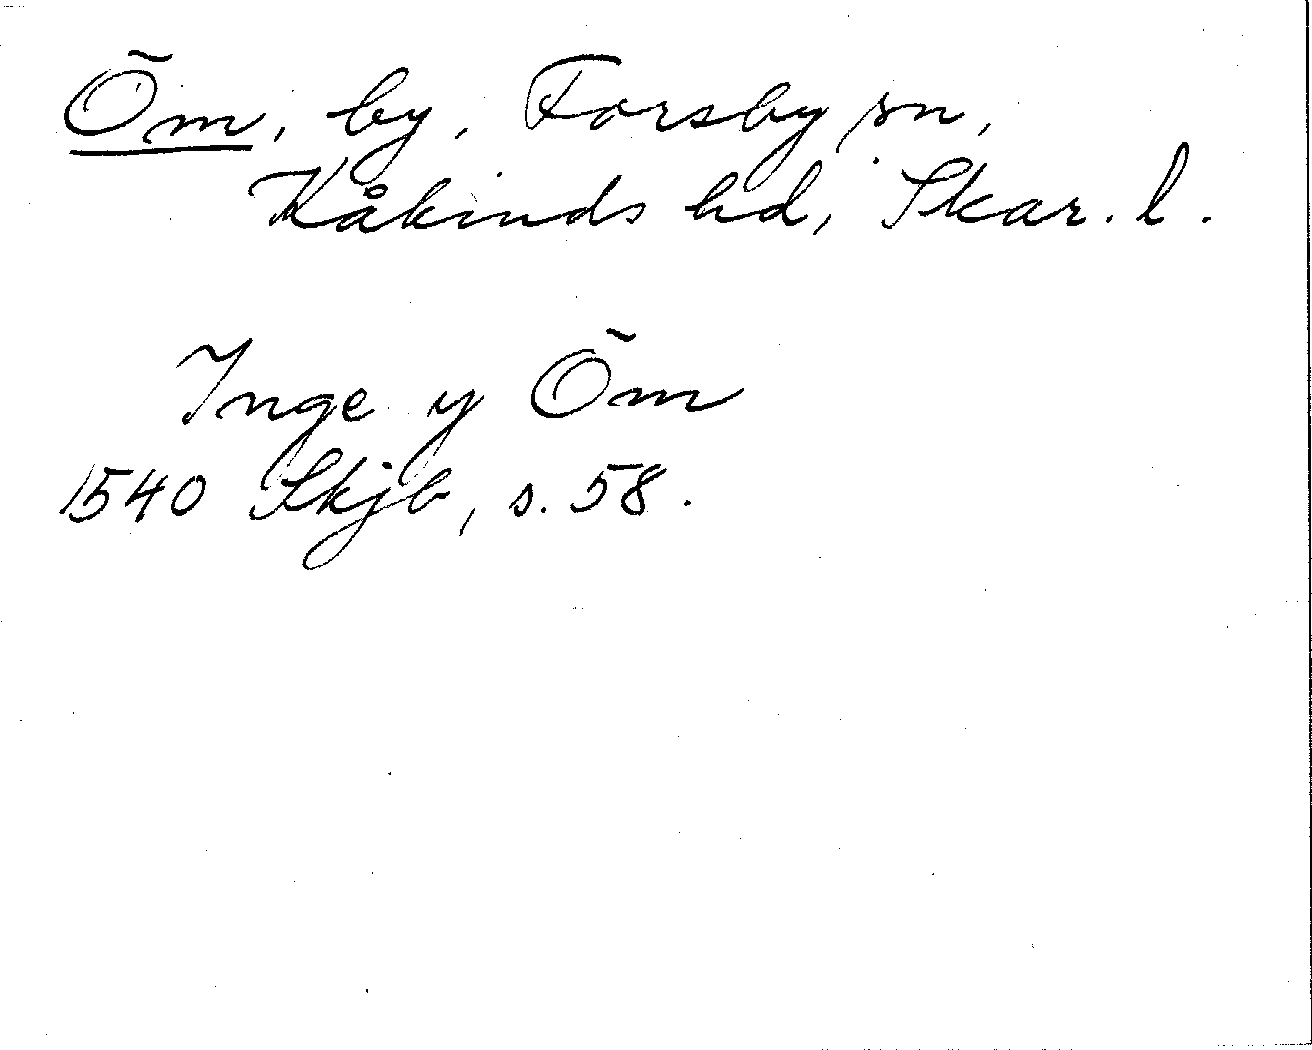 Öm, by, Forsby sn,
Kåkinds hd, Skar. l.
Inge y Öm
1540 Skjb, s. 58.